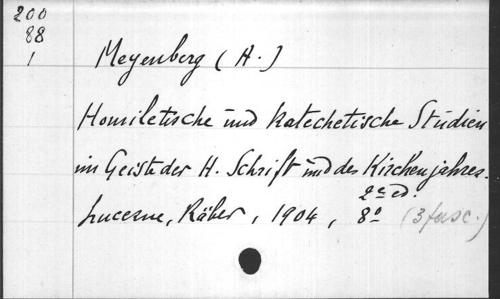 200
88
1
Meyenberg (A.)
Homiletische und Katechetische Studien
im Geiste der H. Schrift und des Kirchenjahres.
2e ed.
Lucerne, Räber, 1904, 8° (3 fasc.)